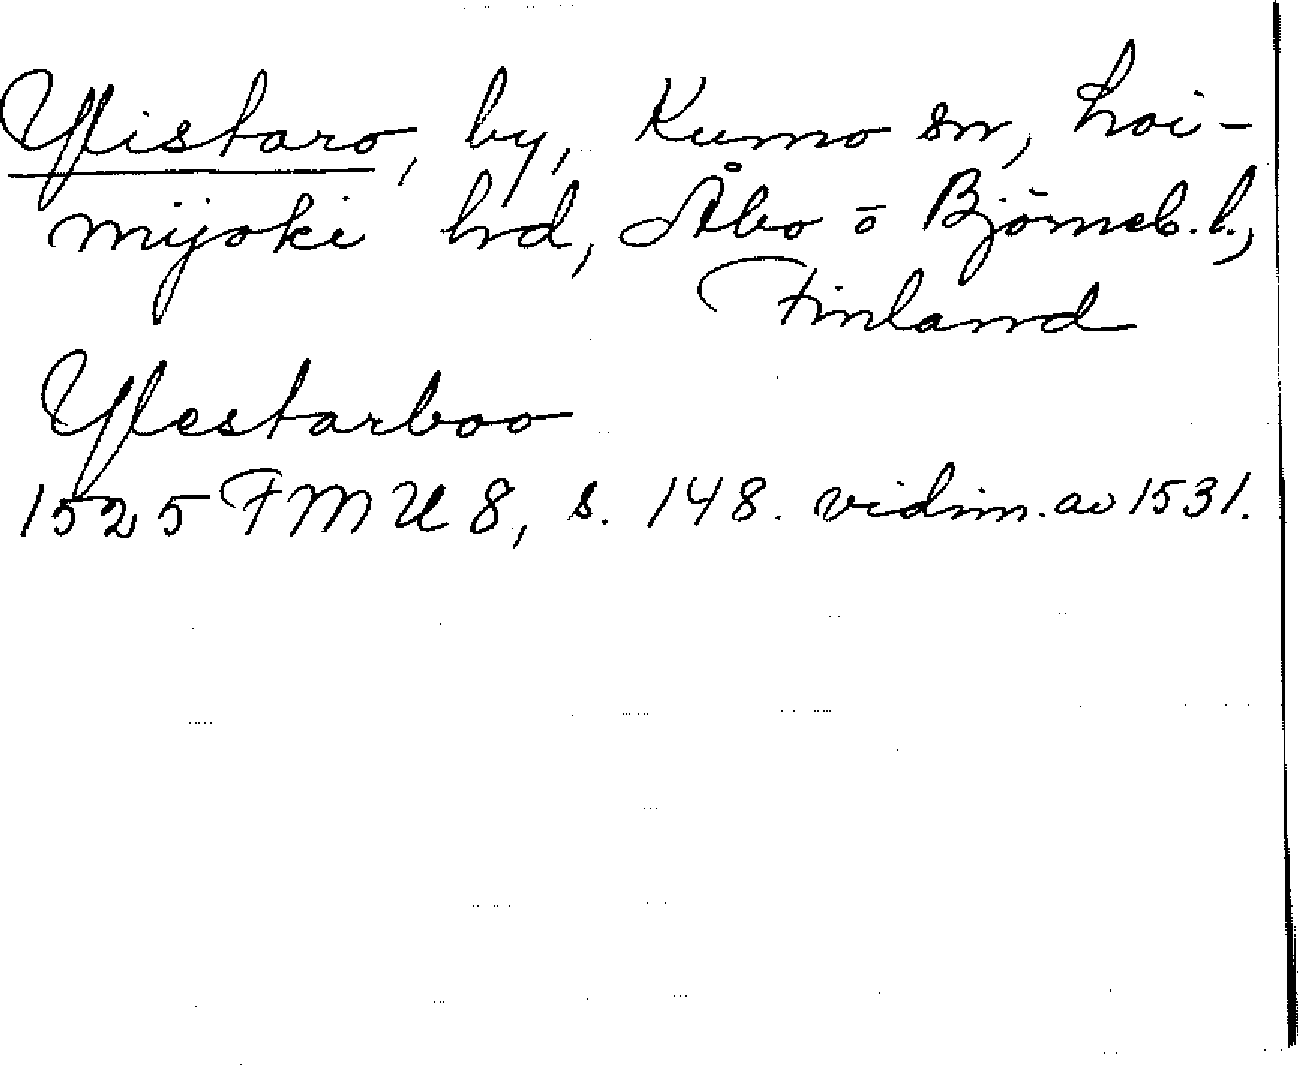 Ylistaro, by, Kumo sn, Loi-
mijoki hd, Åbo o Björneb. l.,
Finland
Ylestarboo
1525 FMU 8, s. 148. vidim. av 1531.